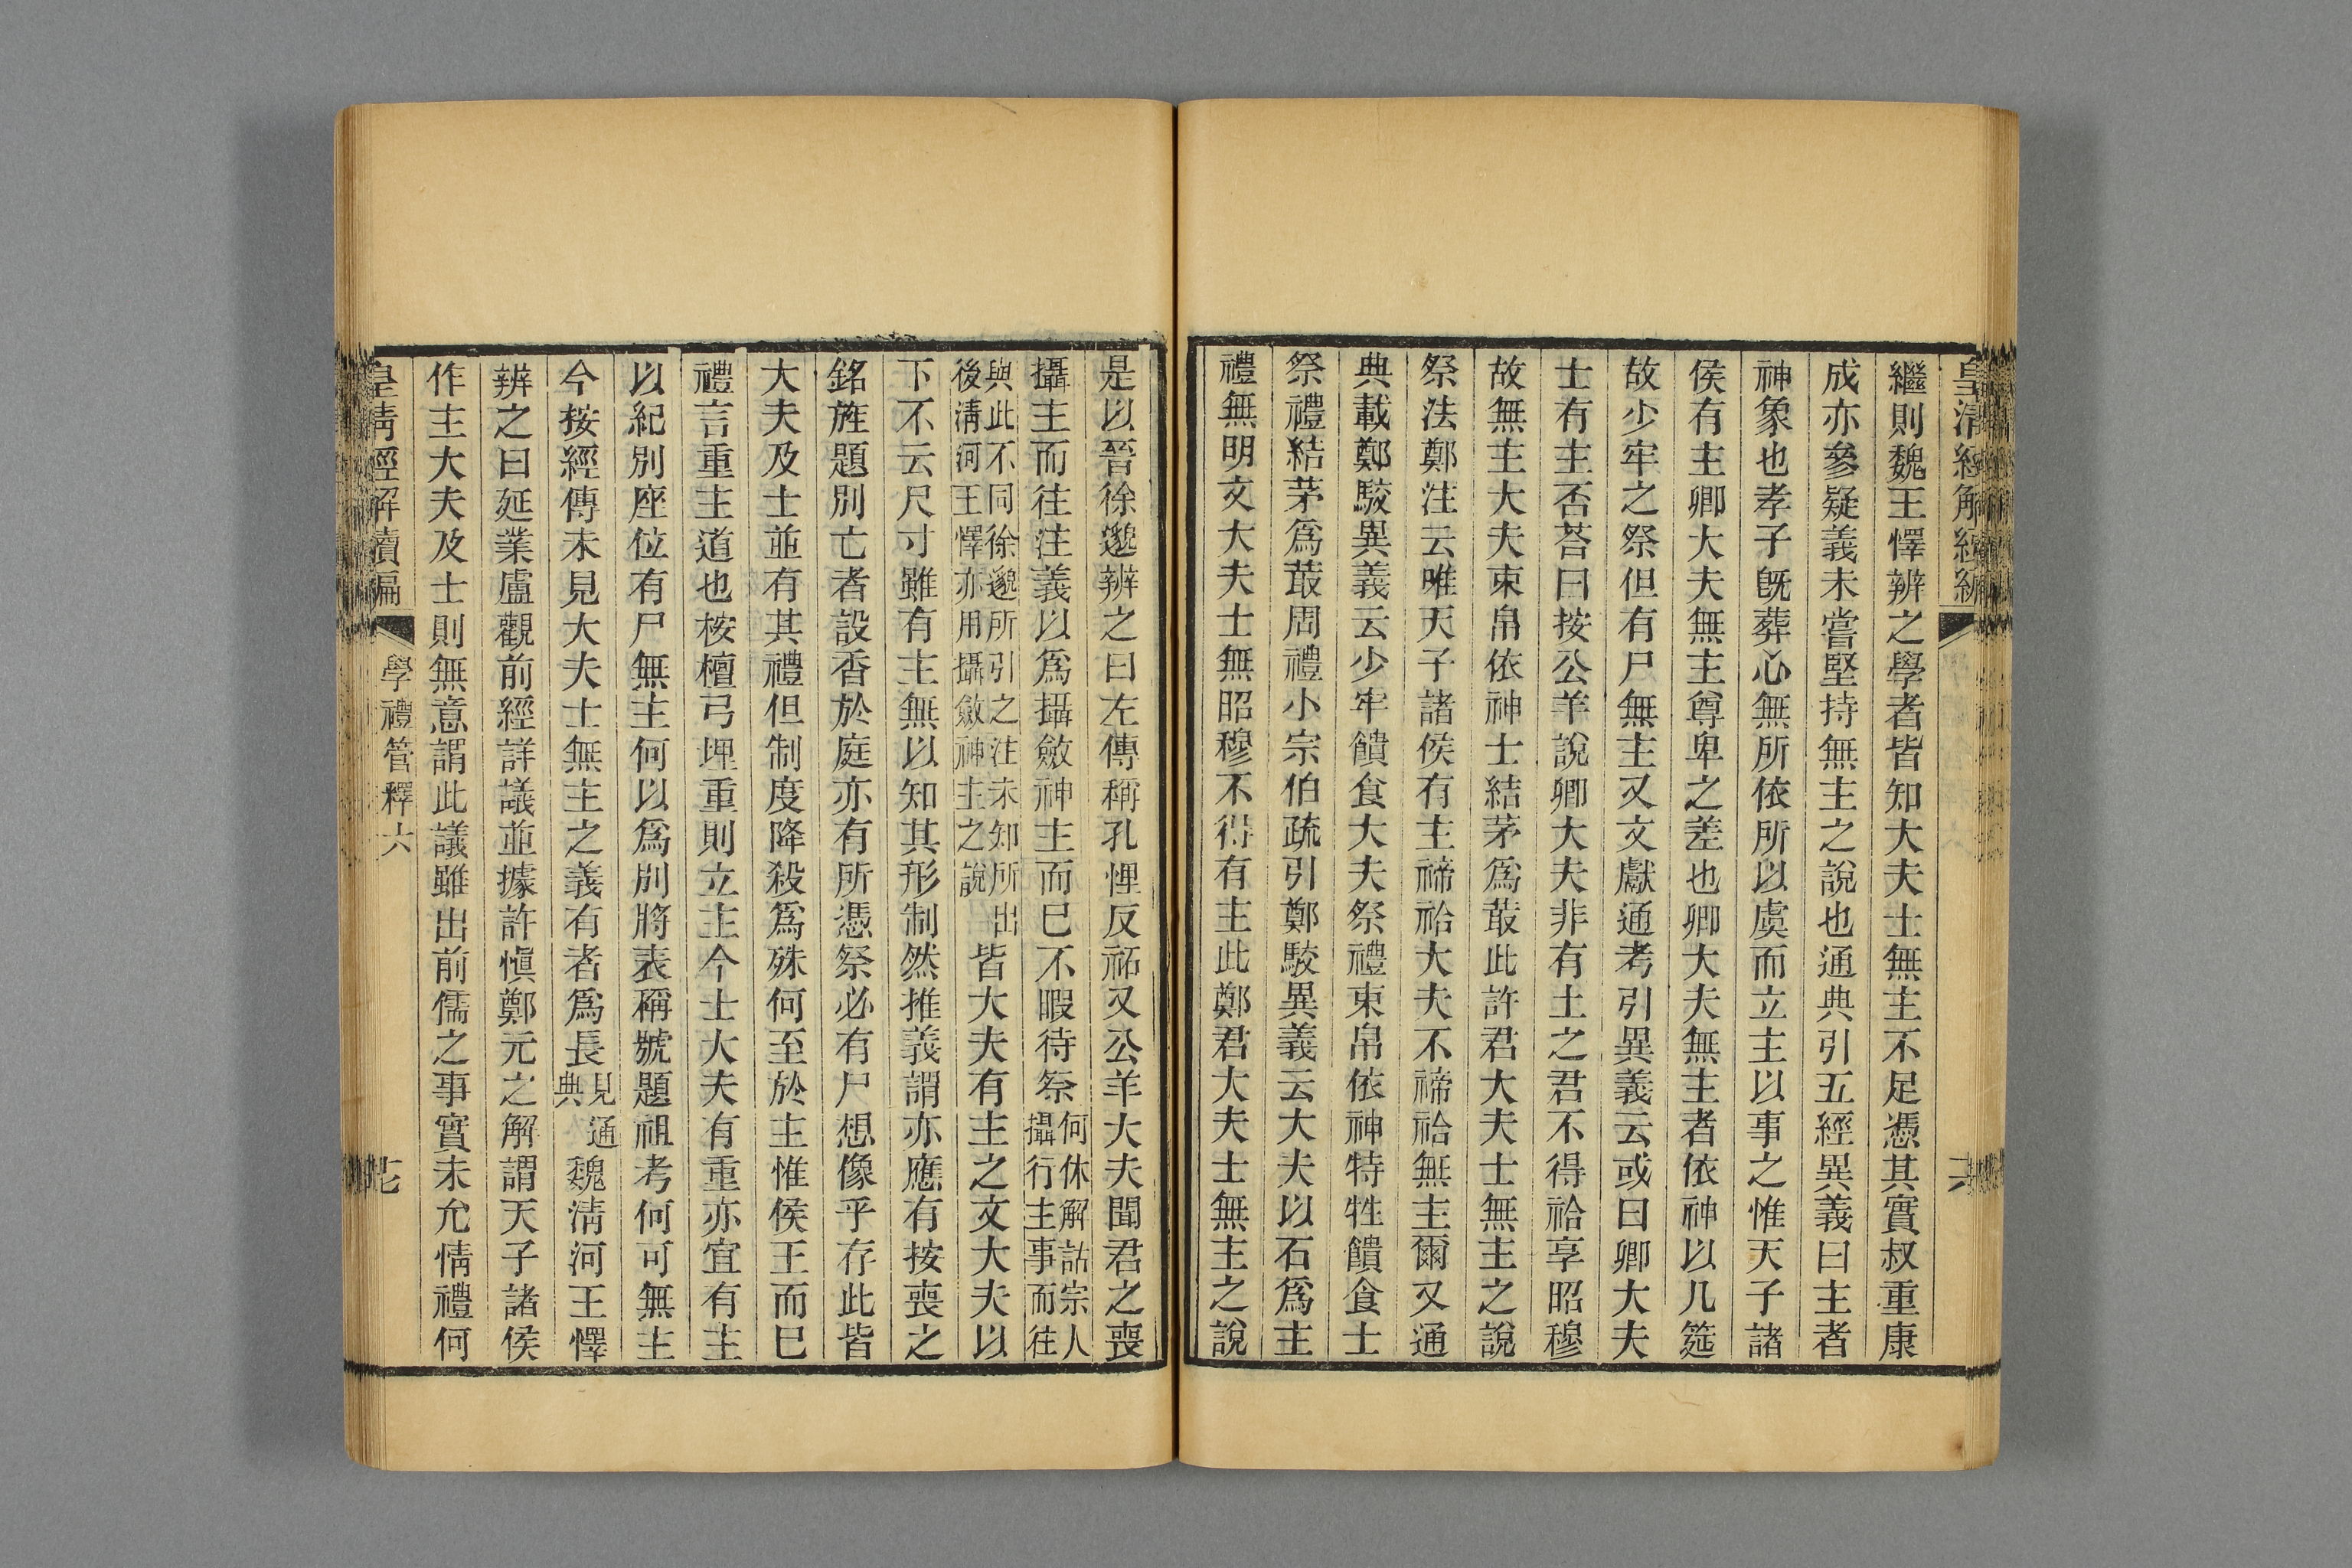 皇清經解續編
繼則魏王懌辨之學者皆知大夫士無主不足憑其實叔重康
成亦參疑義未嘗堅持無主之說也通典引五經異義曰主者
神象也孝子既葬心無所依所以虞而立主以事之惟天子諸
侯有主卿大夫無主尊卑之差也卿大夫無主者依神以几筵
故少牢之祭但有尸無主又文獻通考引異義云或曰卿大夫
士有主否荅曰按公羊說卿大夫非有土之君不得祫享昭穆
故無主大夫束帛依神士結茅爲菆此許君大夫士無主之說
祭法鄭注云唯天子諸侯有主禘祫大夫不禘祫無主爾又通
典載鄭駮異義云少牢饋食大夫祭禮束帛依神特牲饋食士
祭禮結茅爲菆周禮小宗伯疏引鄭駮異義云大夫以石爲主
禮無明文大夫士無昭穆不得有主此鄭君大夫士無主之說
是以晉徐邈辨之曰左傳稱孔悝反祏又公羊大夫聞君之喪
攝主而往注義以爲攝斂神主而已不暇待祭何休解詁宗人攝行主事而往
與此不同徐邈所引之注未知所出後淸河王懌亦用攝斂神主之說皆大夫有主之文大夫以
下不云尺寸雖有主無以知其形制然推義謂亦應有按喪之
銘旌題別亡者設香於庭亦有所憑祭必有尸想像乎存此皆
大夫及士並有其禮但制度降殺爲殊何至於主惟侯王而已
禮言重主道也桉檀弓埋重則立主今士大夫有重亦宜有主
以紀別座位有尸無主何以爲別將表稱號題祖考何可無主
今按經傳未見大夫士無主之義有者爲長見通典魏淸河王懌
辨之曰延業盧觀前經詳議並據許愼鄭元之解謂天子諸侯
作主大夫及士則無意謂此議雖出前儒之事實未允情禮何
皇淸經解續編
學禮管釋六